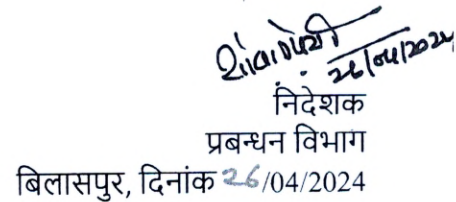 26/04/2024
निदेशक
प्रबन्धन विभाग
बिलासपुर, दिनांक 26/04/2024